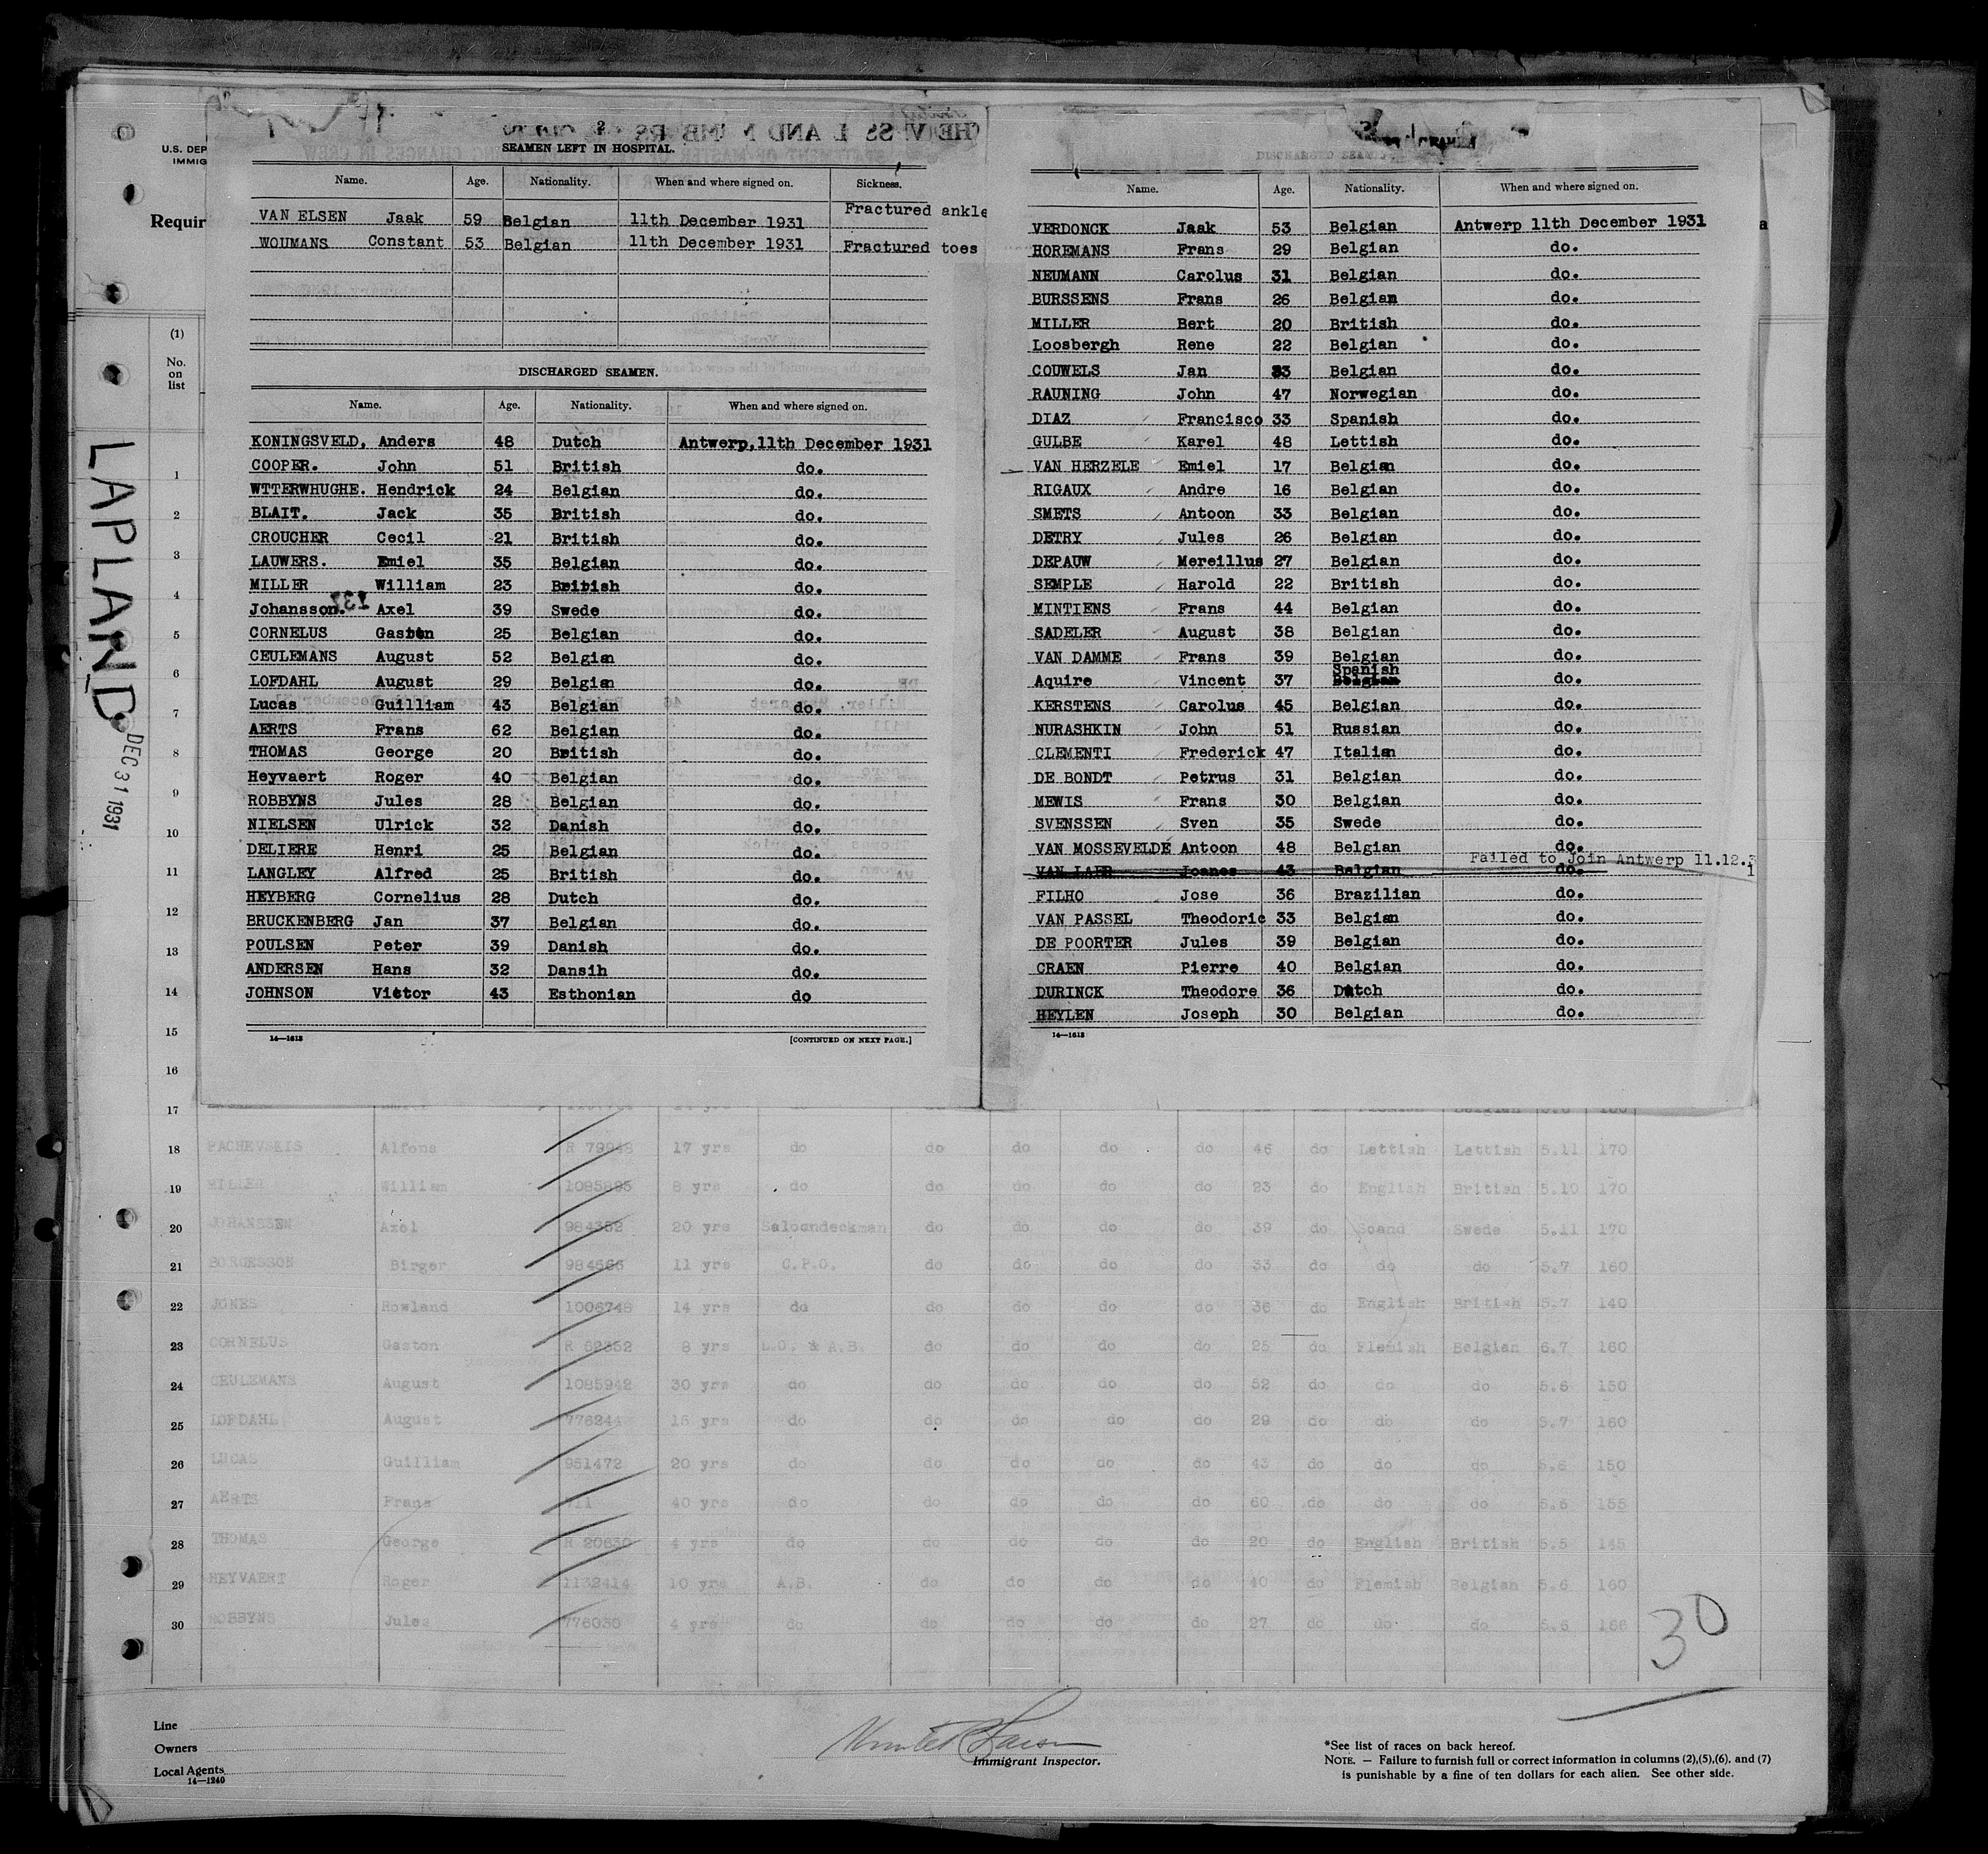 U.S. DEP
IMMIG
Requir
(1)
No.
on
list
LAPLAND
DEC 31 1931
SEAMEN LEFT IN HOSPITAL.
Name. Age. Nationality. When and where signed on. Sickness.
VAN ELSEN Jaak 59 Belgian 11th December 1931 Fractured ankle
WOUMANS Constant 53 Belgian 11th December 1931 Fractured toes
DISCHARGED SEAMEN.
Name. Age. Nationality. When and where signed on.
KONINGSVELD, Anders 48 Dutch Antwerp,11th December 1931
COOPER. John 51 British do.
WTTERWHUGHE. Hendrick 24 Belgian do.
BLAIT. Jack 35 British do.
CROUCHER Cecil 21 British do.
LAUWERS. Emiel 35 Belgian do.
MILLER William 23 British do.
Johansson. Axel 39 Swede do.
CORNELUS Gaston 25 Belgian do.
CEULEMANS August 52 Belgian do.
LOFDAHL August 29 Belgian do.
Lucas Guilliam 43 Belgian do.
AERTS Frans 62 Belgian do.
THOMAS George 20 British do.
Heyvaert Roger 40 Belgian do.
ROBBYNS Jules 28 Belgian do.
NIELSEN Ulrick 32 Danish do.
DELIERE Henri 25 Belgian do.
LANGLEY Alfred 25 British do.
HEYBERG Cornelius 28 Dutch do.
BRUCKENBERG Jan 37 Belgian do.
POULSEN Peter 39 Danish do.
ANDERSEN Hans 32 Dansih do.
JOHNSON Victor 43 Esthonian do
14—1613 [CONTINUED ON NEXT PAGE.]
DISCHARGED SEAMEN
Name. Age. Nationality. When and where signed on.
VERDONCK Jaak 53 Belgian Antwerp 11th December 1931
HOREMANS Frans 29 Belgian do.
NEUMANN Carolus 31 Belgian do.
BURSSENS Frans 26 Belgian do.
MILLER Bert 20 British do.
Loosbergh Rene 22 Belgian do.
COUWELS Jan 33 Belgian do.
RAUNING John 47 Norwegian do.
DIAZ Francisco 33 Spanish do.
GULBE Karel 48 Lettish do.
VAN HERZELE Emiel 17 Belgian do.
RIGAUX Andre 16 Belgian do.
SMETS Antoon 33 Belgian do.
DETRY Jules 26 Belgian do.
DEPAUW Mereillus 27 Belgian do.
SEMPLE Harold 22 British do.
MINTIENS Frans 44 Belgian do.
SADELER August 38 Belgian do.
VAN DAMME Frans 39 Belgian do.
Aquire Vincent 37 Spanish Belgian do.
KERSTENS Carolus 45 Belgian do.
NURASHKIN John 51 Russian do.
CLEMENTI Frederick 47 Italian do.
DE BONDT Petrus 31 Belgian do.
MEWIS Frans 30 Belgian do.
SVENSSEN Sven 35 Swede do.
VAN MOSSEVELDE Antoon 48 Belgian do.
Failed to Join Antwerp 11.12.31
VAN LAER Joanes 43 Belgian do.
FILHO Jose 36 Brazilian do.
VAN PASSEL Theodoric 33 Belgian do.
DE POORTER Jules 39 Belgian do.
CRAEN Pierre 40 Belgian do.
DURINCK Theodore 36 Dutch do.
HEYLEN Joseph 30 Belgian do.
14—1613
1
2
3
4
5
6
7
8
9
10
11
12
13
14
15
16
17
18 PACHEVSKIS Alfons R 79948 17 yrs do do do do do 46 do Lettish Lettish 5.11 170
19 MILLER William 1085895 8 yrs do do do do do 23 do English British 5.10 170
20 JOHANSSEN Axel 984352 20 yrs Saloondeckman do do do do 39 do Scand Swede 5.11 170
21 BORGESSON Birger 984566 11 yrs C.P.O. do do do do 33 do do do 5.7 160
22 JONES Rowland 1006748 14 yrs do do do do do 36 do English British 5.7 140
23 CORNELUS Gaston R 62352 8 yrs L.O. & A.B. do do do do 25 do Flemish Belgian 6.7 160
24 CEULEMANS August 1085942 30 yrs do do do do do 52 do do do 5.6 150
25 LOFDAHL August 776244 16 yrs do do do do do 29 do do do 5.7 160
26 LUCAS Guilliam 951472 20 yrs do do do do do 43 do do do 5.6 150
27 AERTS Frans 40 yrs do do do do do 60 do do do 5.6 155
28 THOMAS George R 20630 4 yrs do do do do do 20 do English British 5.5 145
29 HEYVAERT Roger 1132414 10 yrs A.B. do do do do 40 do Flemish Belgian 5.6 160
30 ROBBYNS Jules 776030 4 yrs do do do do do 27 do do do 5.6 166
30
Line
Owners
Local Agents
14—1240
Immigrant Inspector.
*See list of races on back hereof.
NOTE. — Failure to furnish full or correct information in columns (2),(5),(6), and (7)
is punishable by a fine of ten dollars for each alien. See other side.